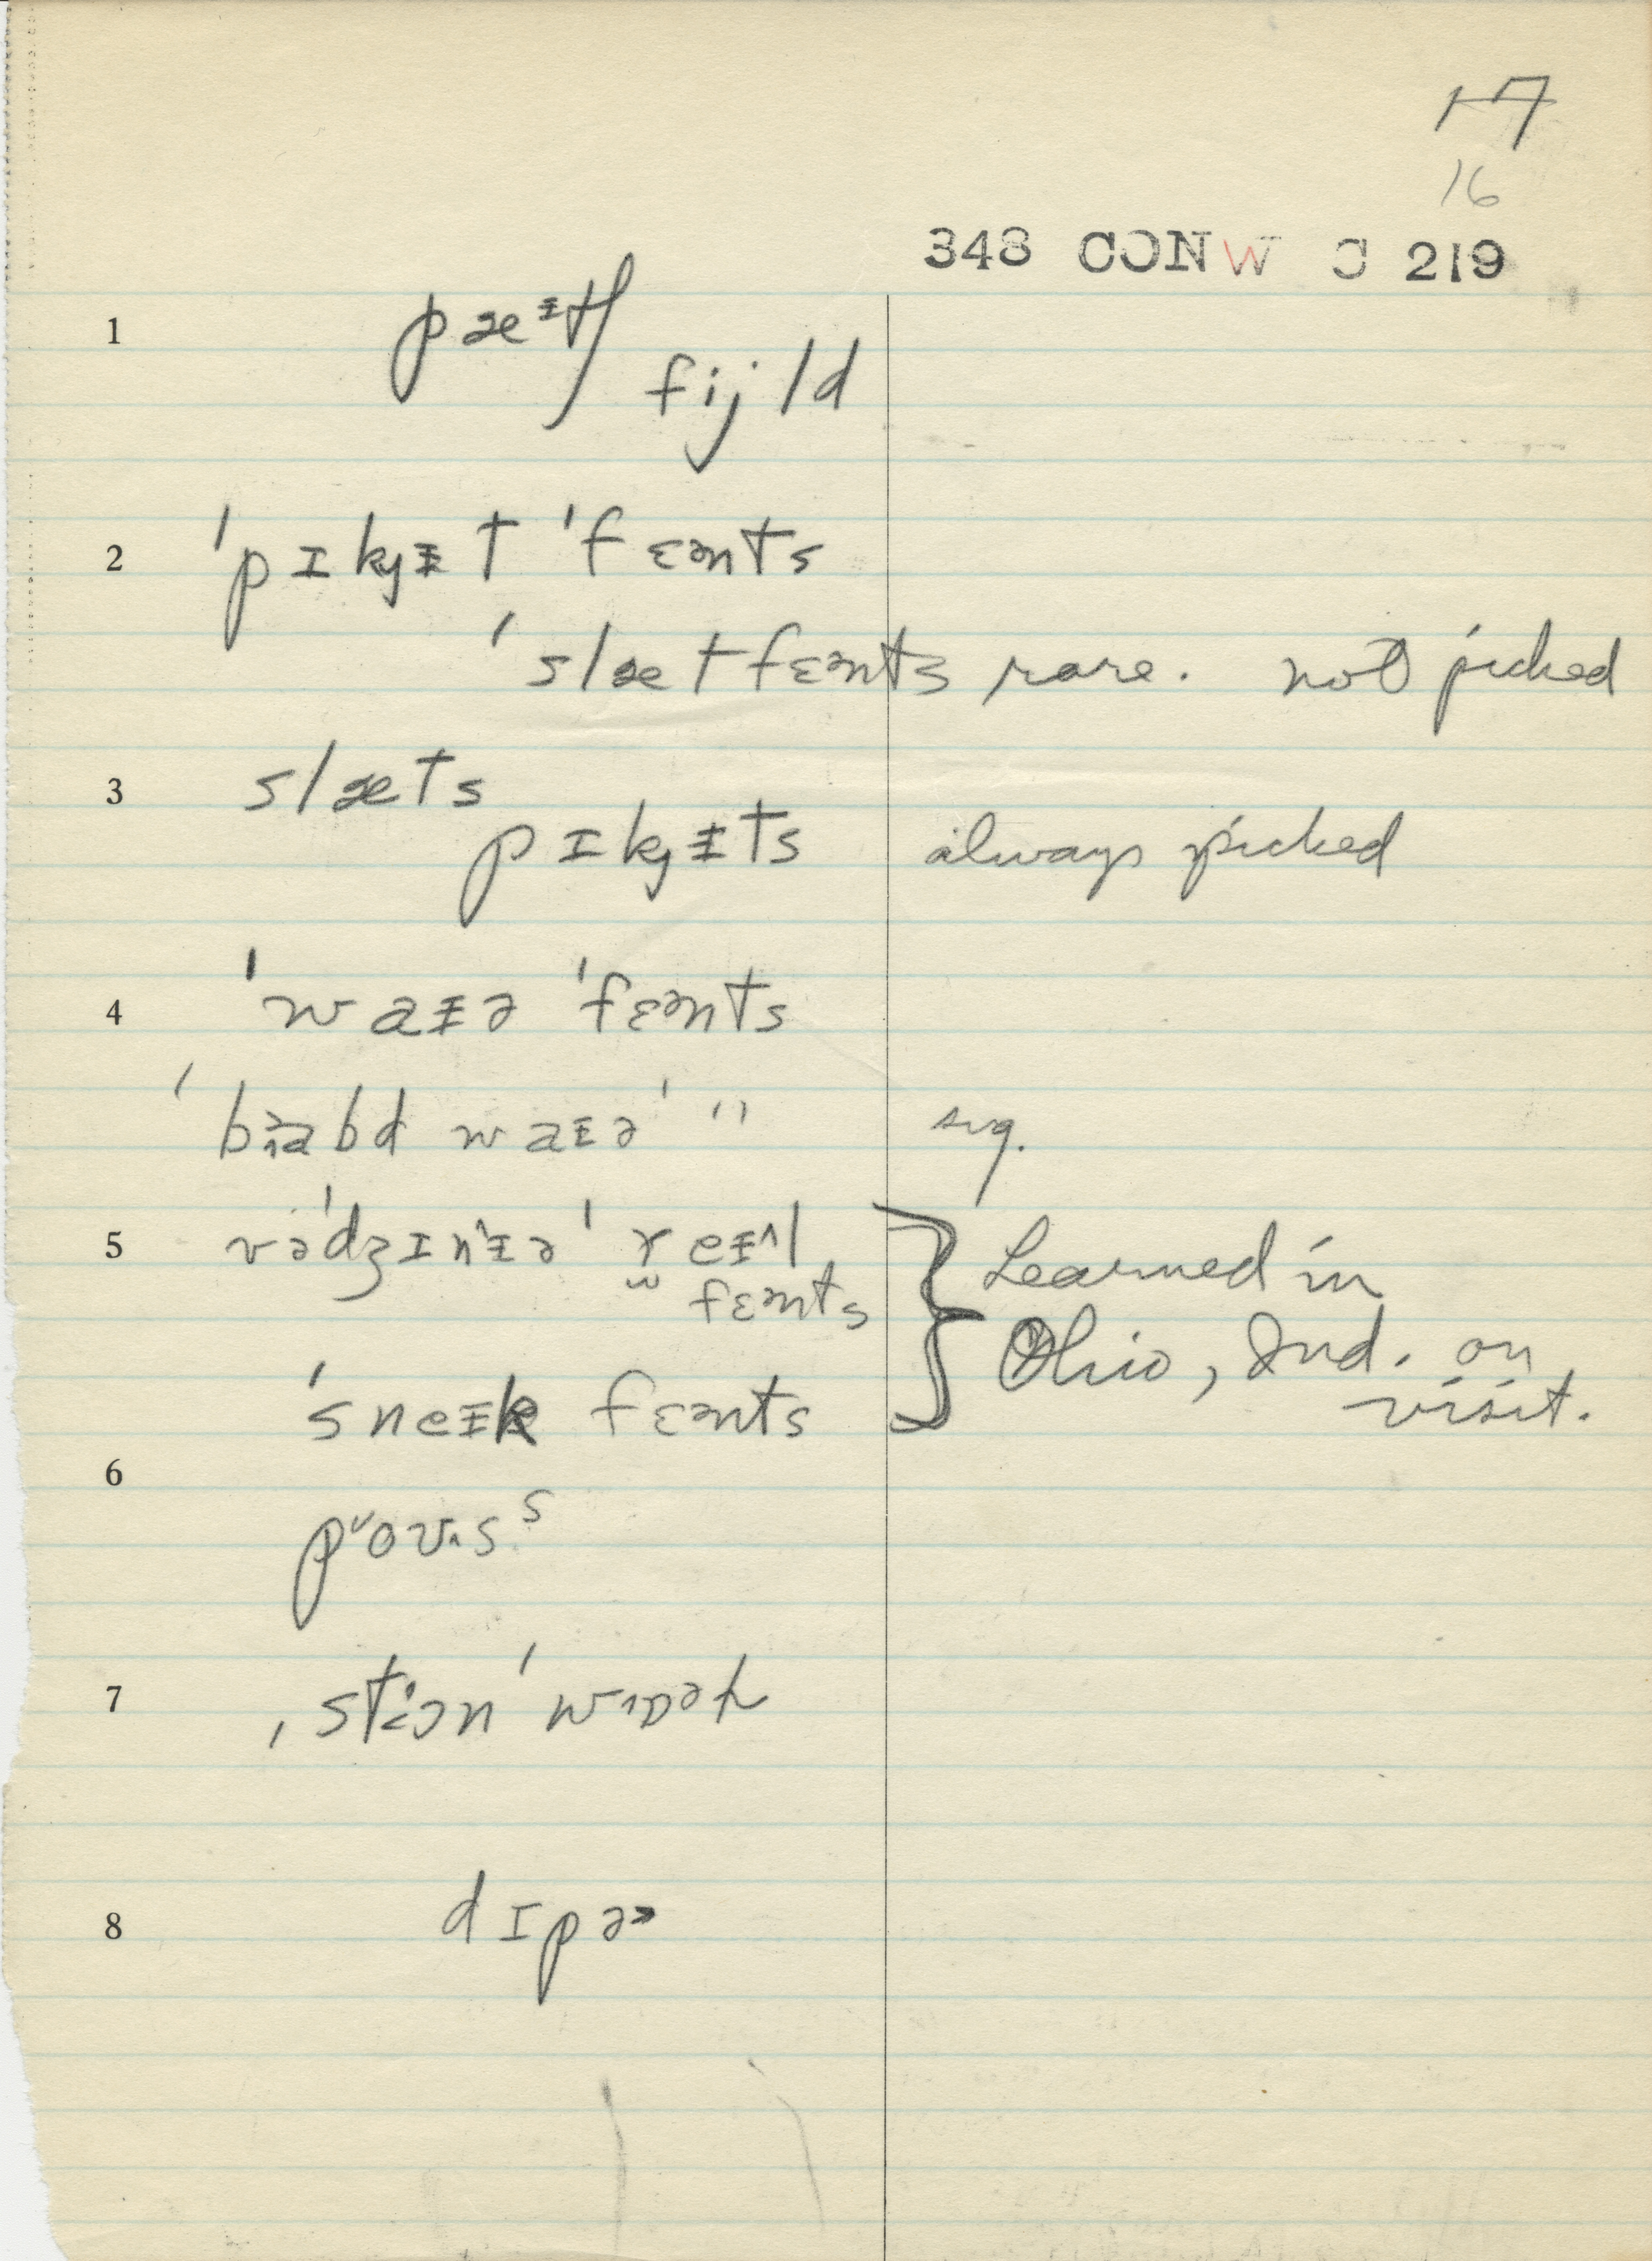 17
16
348 CONW C 219
1 pæᵻtʃ
fijld
2 ˈpɪkjᵻt ˈfɛənts
ˈslætfɛənts rare. not picked
3 slæts
pɪkjᵻts always picked
4 ˈwaᵻə ˈfɛənts
ˈbɑabd waᵻəˈ " sug.
5 vəˈdʒɪnᵻəˈ reᵻ^l
fɛənts
Learned in
Ohio, Ind. on
visit.
ˈsneᵻk fɛənts
6
7 ˌstɔnˈ
8 dɪpə